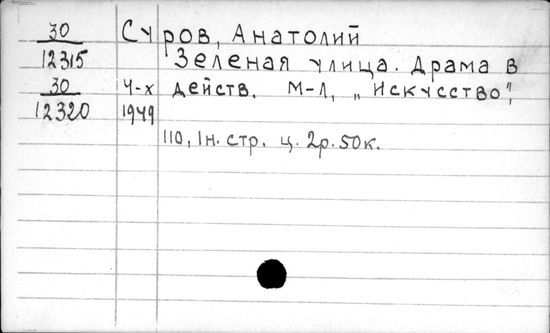 30 Суров, Анатолий
12315 Зеленая улица. Драма в
30 4-х действ. М-Л, „Искусство",
12320 1949
110, 1н. стр. ц. 2р. 50к.